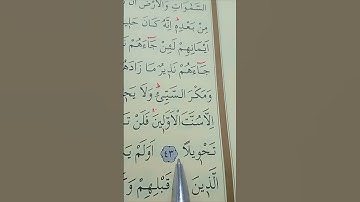 السَّمٰوَاتِ وَالْاَرْضَ اَنْ
مِنْ بَعْدِهٖ اِنَّهُ كَانَ
اَيْمَانِهِمْ لَئِنْ جَٓاءَهُمْ
جَٓاءَهُمْ نَذٖيرٌ مَا
وَمَكْرَ السَّيِّئِ وَلَا
اِلَّا سُنَّتَ الْاَوَّلٖينَ فَلَنْ
تَحْوٖيلًا ٤٣ اَوَلَمْ
الَّذٖينَ قَبْلِهِمْ